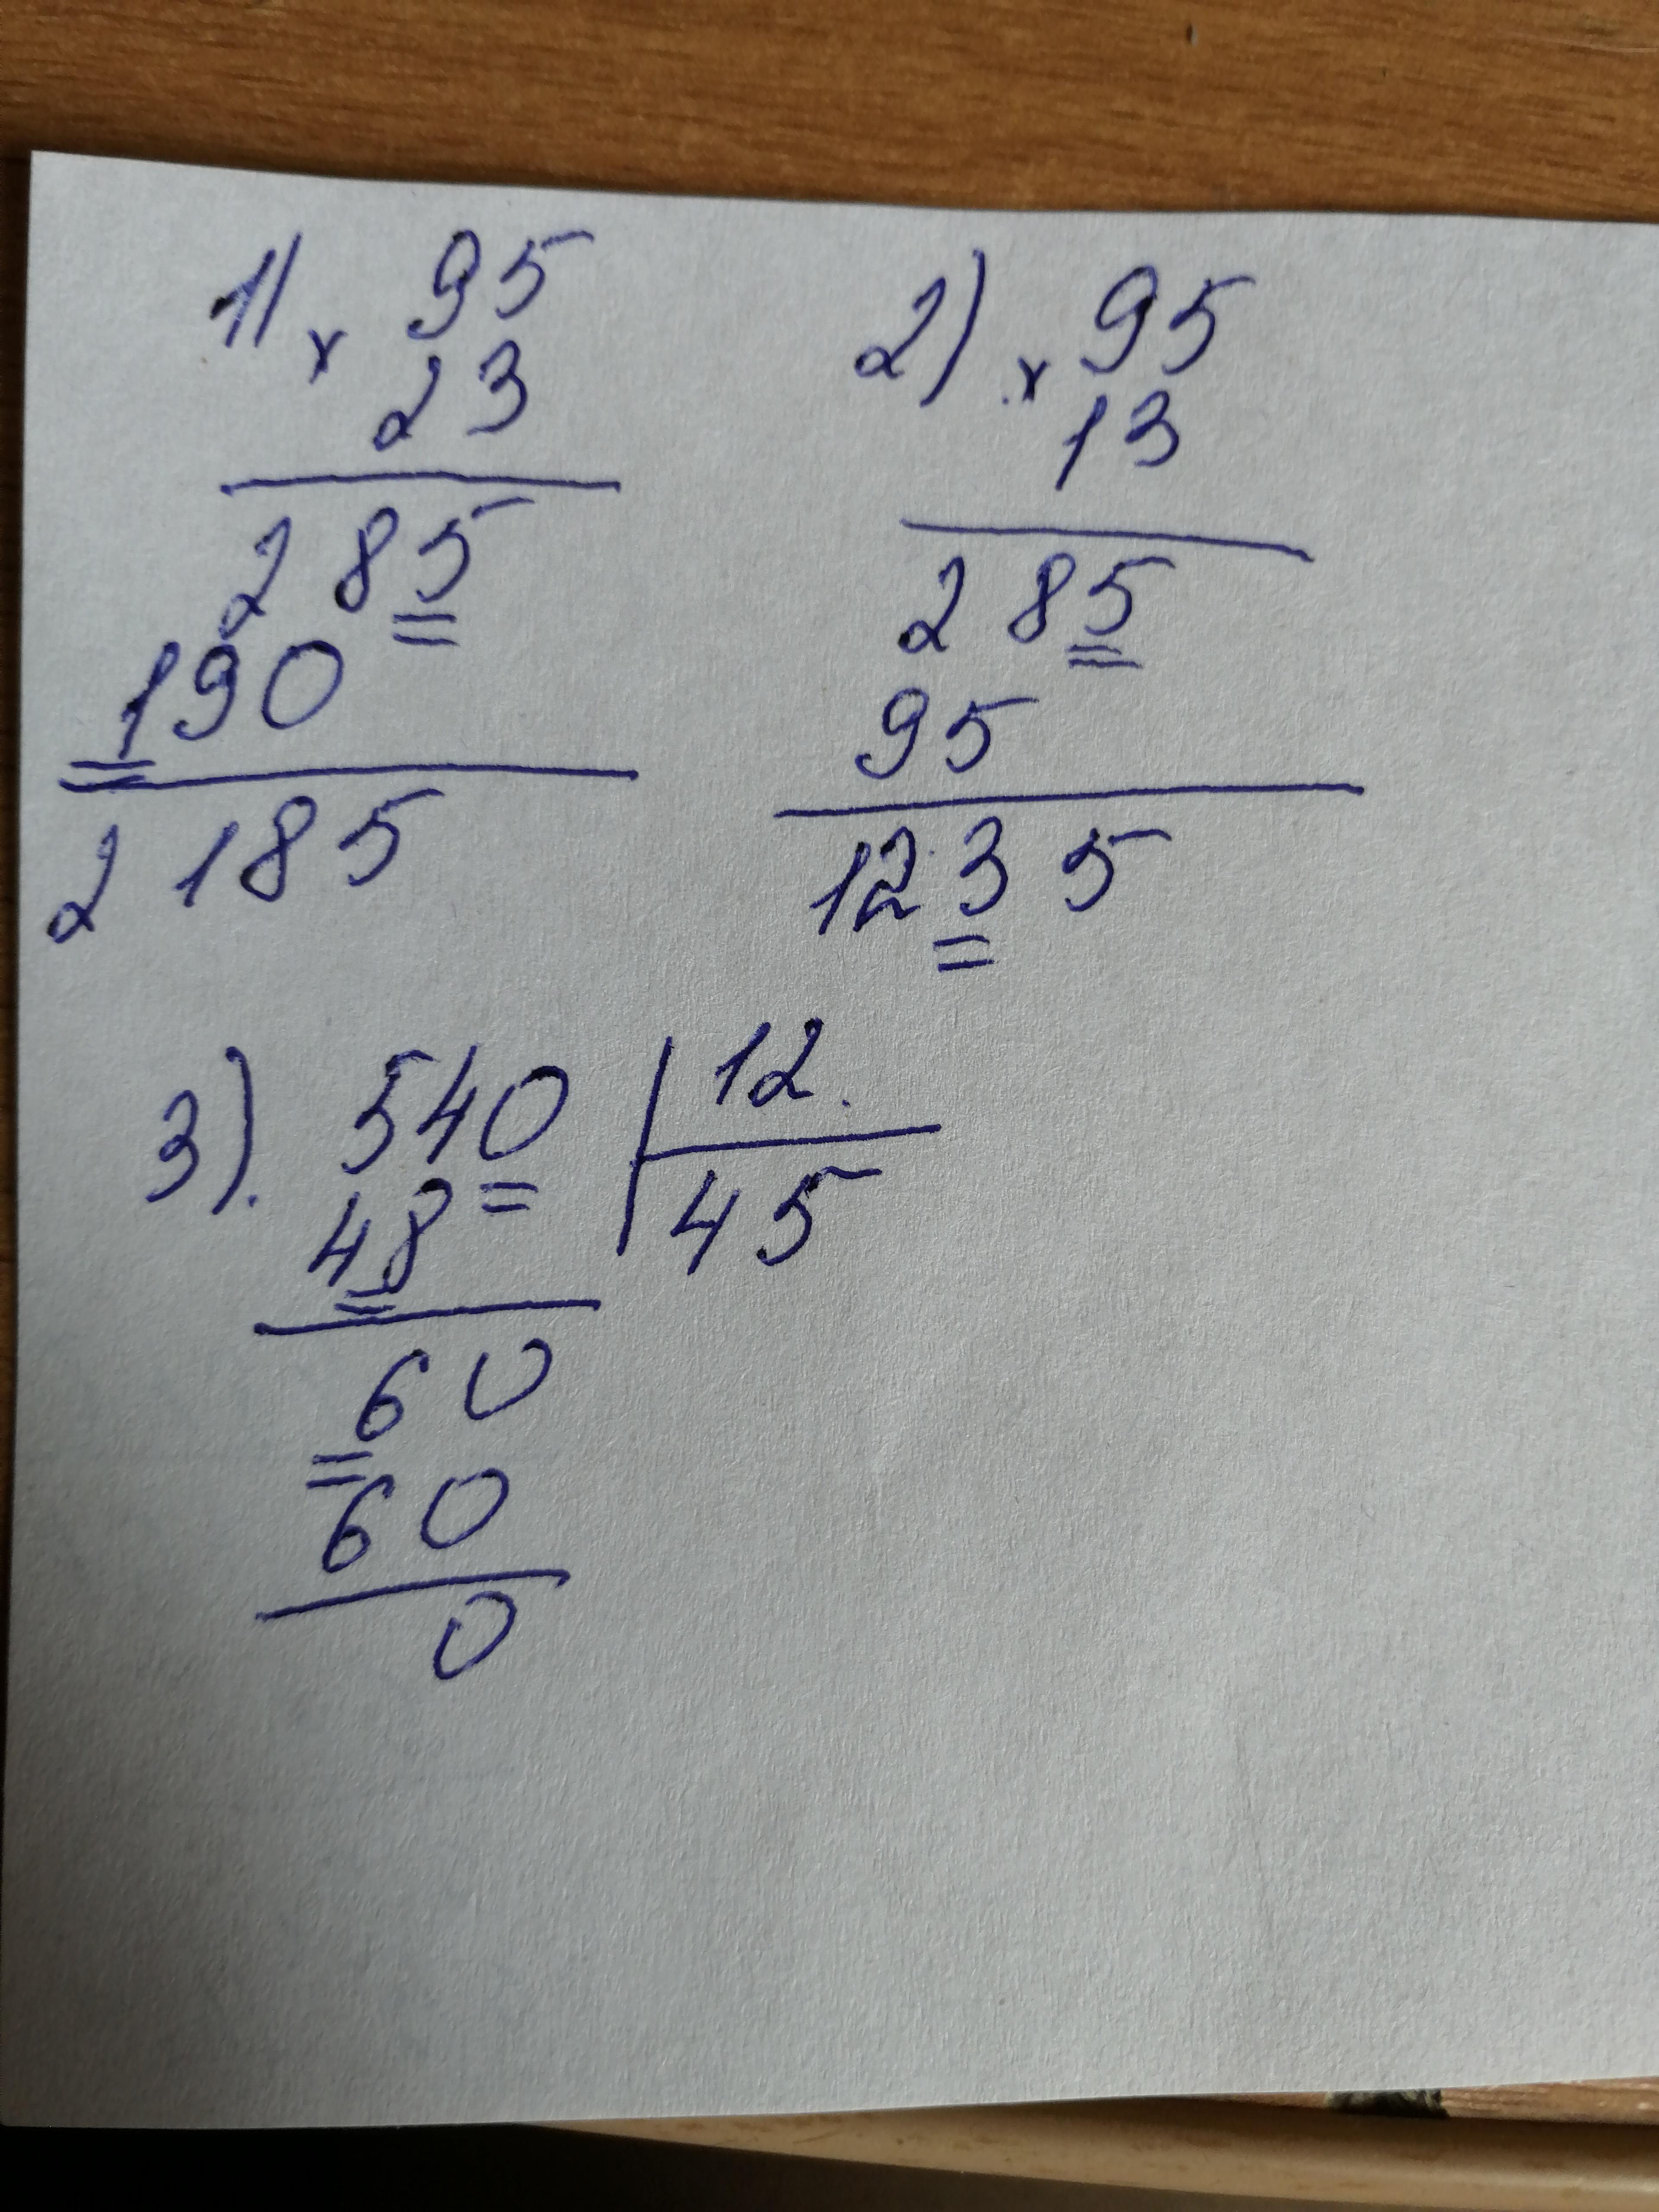 1) x 95
23
285
190
2185
2) x 95
13
285
95
1235
3). 540 | 12.
48 45
60
60
0